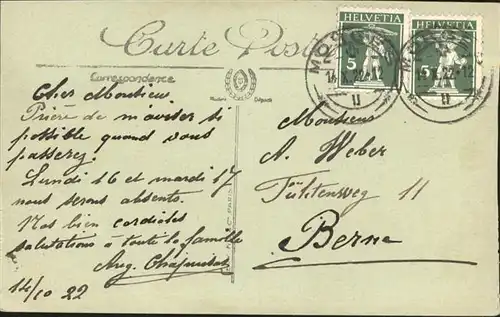 Carte Postale
HELVETIA HELVETIA
5 5
Correspondence
Cher Monsieur
Prière de m'aviser si
possible quand vous
passerez.
Lundi 16 et mardi 17
nous serons absents.
Nos bien cordiales
salutations à toute la famille
Aug.
14/10 22
Monsieur
A. Weber
11
Berne